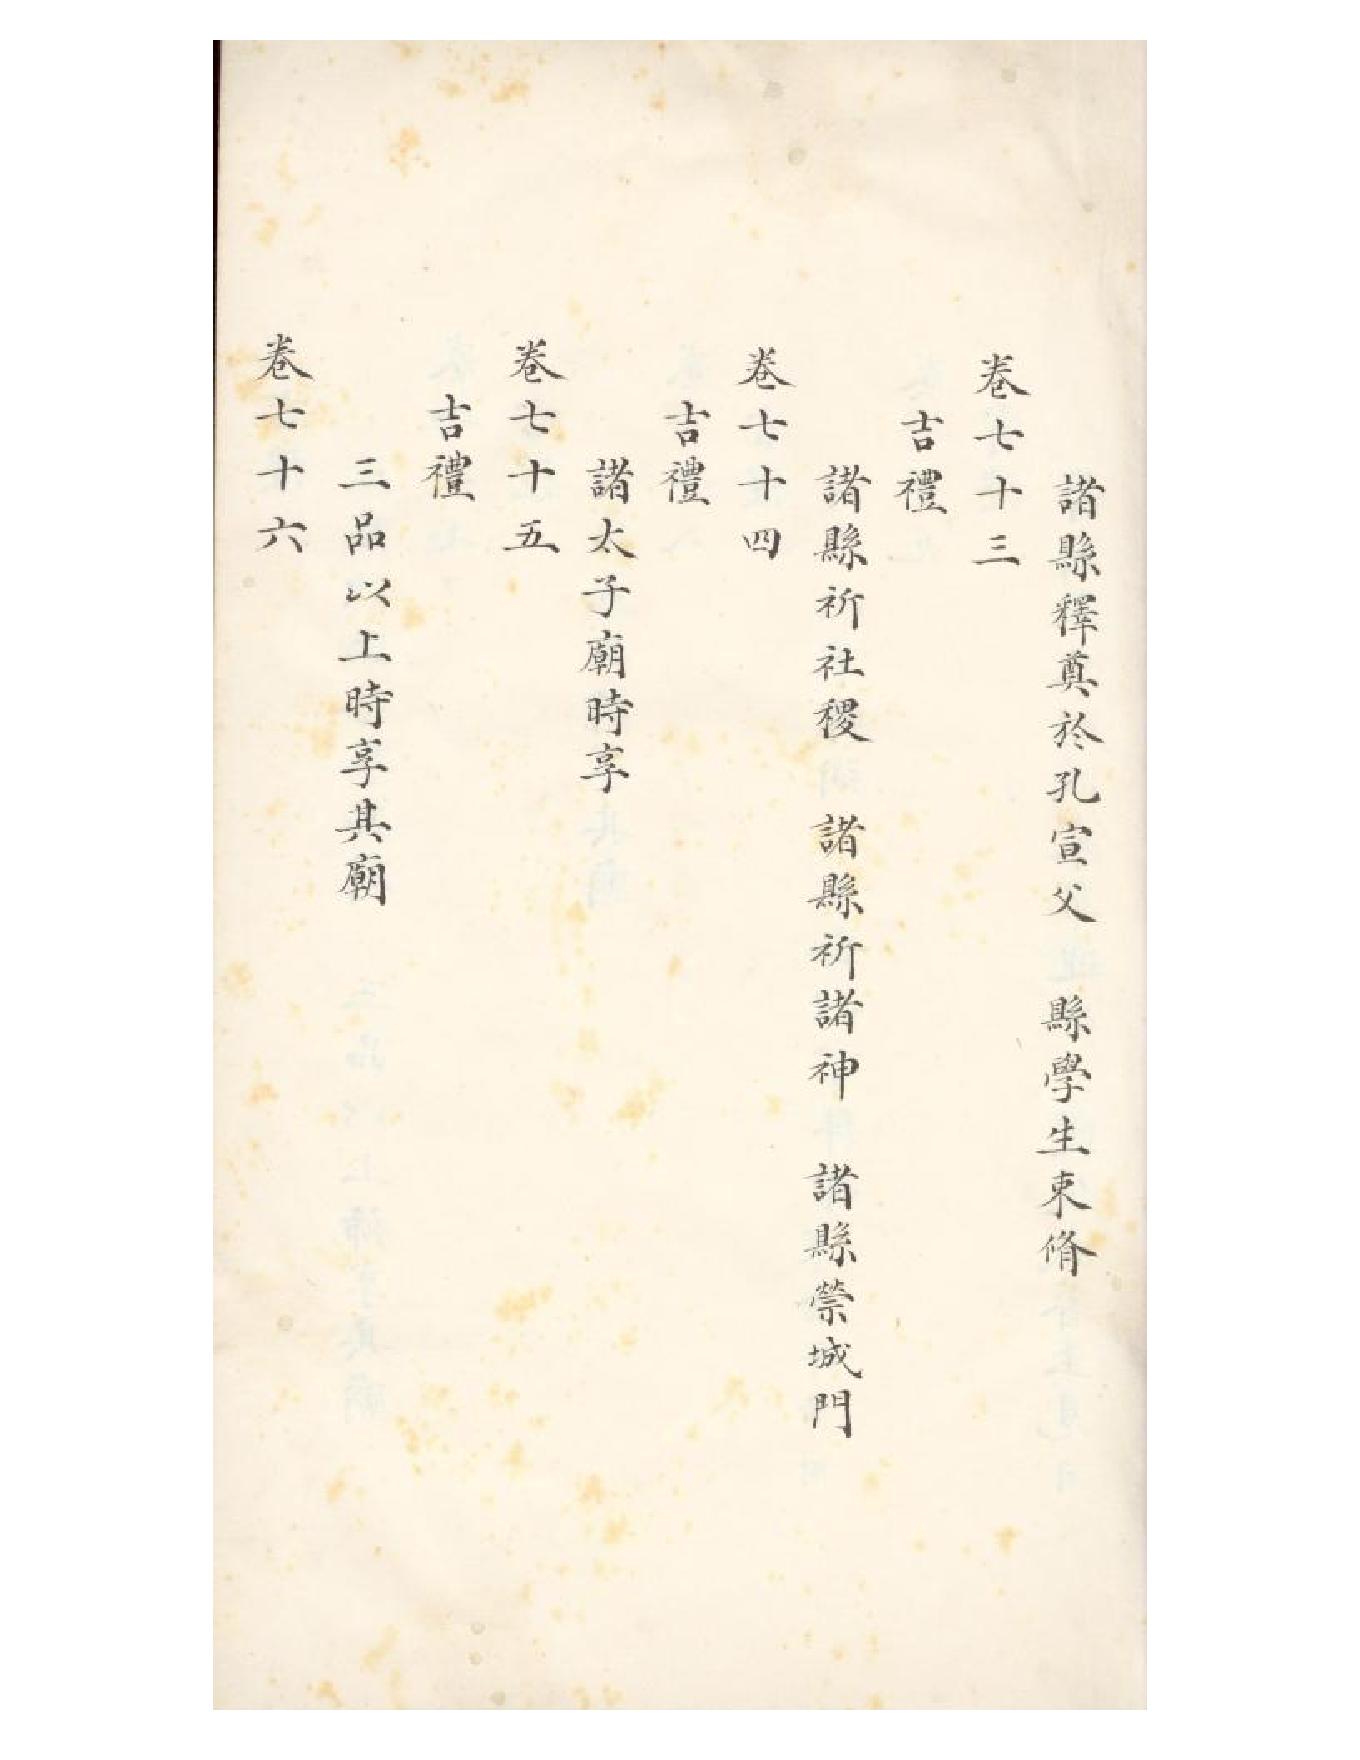 諸縣釋奠於孔宣父　縣學生束脩
卷七十三
吉禮
諸縣祈社稷　諸縣祈諸神　諸縣禜城門
卷七十四
吉禮
諸太子廟時享
卷七十五
吉禮
三品以上時享其廟
卷七十六